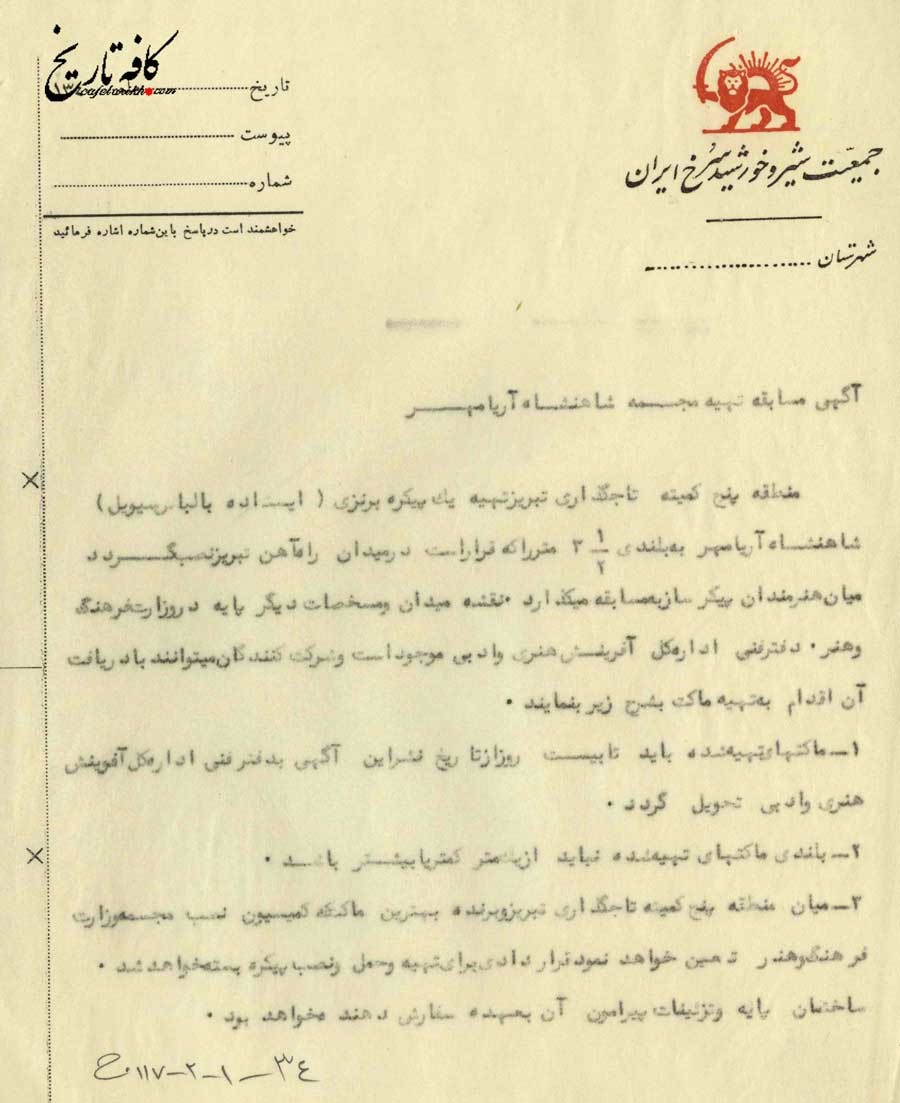 کافه تاریخ
cafetarikh.com
تاریخ
پیوست
شماره
خواهشمند است در پاسخ باین شماره اشاره فرمائید
جمعیت شیر و خورشید سرخ ایران
شهرستان
آگهی مسابقه تهیه مجسمه شاهنشاه آریامهر
منطقه پنج کمیته تاجگذاری تبریز تهیه یك پیکره برنزی ( ایستاده بالباس سیویل )
شاهنشاه آریامهر به بلندی ۳ ۱/۲ متر را که قرار است در میدان راه آهن تبریز نصب گردد
میان هنرمندان پیکر ساز به مسابقه میگذارد ۰ نقشه میدان و مشخصات دیگر پایه در وزارت فرهنگ
وهنر ۰ دفتر فنی اداره کل آفرینش هنری وادبی موجود است وشرکت کنندگان میتوانند با دریافت
آن اقدام به تهیه ماکت بشرح زیر بنمایند ۰
۱ـ ماکتهای تهیه شده باید تا بیست روز از تاریخ نشر این آگهی بدفتر فنی اداره کل آفرینش
هنری وادبی تحویل گردد ۰
۲ـ بلندی ماکتهای تهیه شده نباید از یکمتر کمتر یا بیشتر باشد ۰
۳ـ میان منطقه پنج کمیته تاجگذاری تبریز وبرنده بهترین ماکت که کمیسیون نصب مجسمه وزارت
فرهنگ وهنر تعیین خواهد نمود قراردادی برای تهیه وحمل ونصب پیکره بسته خواهد شد ۰
ساختمان پایه وتزئیفات پیرامون آن بعهده سفارش دهنده خواهد بود ۰
۳٤ـ۱ـ۲ـ۱۱۷